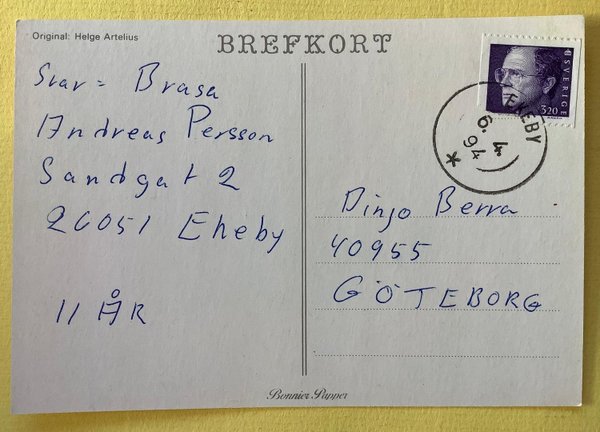 Original: Helge Artelius
BREFKORT
SVERIGE
320
EKEBY
6. 4.
94
Svar= Brasa
Andreas Persson
Sandgat 2
26051 Eheby
11 ÅR
Dingo Berra
40955
GÖTEBORG
Bonnier Papper